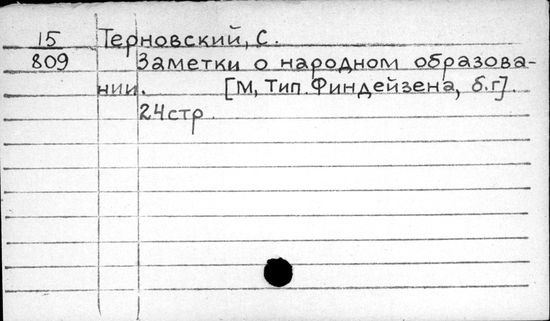 15 Терновский, С.
809 Заметки о народном образова-
нии. [М, Тип. Финдейзена, б.г].
24стр.